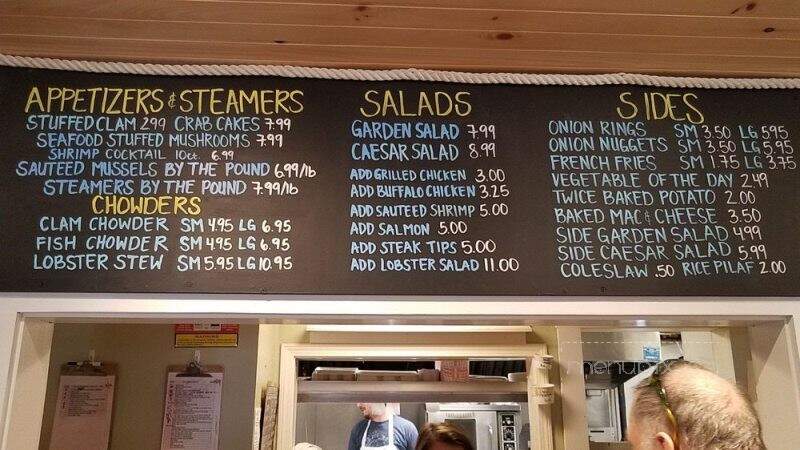 APPETIZERS & STEAMERS
STUFFED CLAM 2.99 CRAB CAKES 7.99
SEAFOOD STUFFED MUSHROOMS 7.99
SHRIMP COCKTAIL 10ct. 6.99
SAUTEED MUSSELS BY THE POUND 6.99/lb
STEAMERS BY THE POUND 7.99/lb
CHOWDERS
CLAM CHOWDER SM 4.95 LG 6.95
FISH CHOWDER SM 4.95 LG 6.95
LOBSTER STEW SM 5.95 LG 10.95
SALADS
GARDEN SALAD 7.99
CAESAR SALAD 8.99
ADD GRILLED CHICKEN 3.00
ADD BUFFALO CHICKEN 3.25
ADD SAUTEED SHRIMP 5.00
ADD SALMON 5.00
ADD STEAK TIPS 5.00
ADD LOBSTER SALAD 11.00
SIDES
ONION RINGS SM 3.50 LG 5.95
ONION NUGGETS SM 3.50 LG 5.95
FRENCH FRIES SM 1.75 LG 3.75
VEGETABLE OF THE DAY 2.49
TWICE BAKED POTATO 2.00
BAKED MAC & CHEESE 3.50
SIDE GARDEN SALAD 4.99
SIDE CAESAR SALAD 5.99
COLESLAW .50 RICE PILAF 2.00
menupix